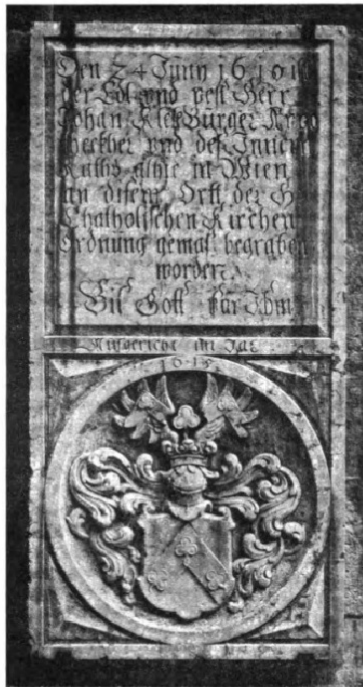 Den 24 Juny 1610 ist
der Edl und vest Herr
Johan Burger
und des Innern
Raths alhie in Wien
an disem Ortt der H
Chatholischen Kirchen
Ordnung gemäß begraben
worden.
Bit Gott für Ihm
Aufgericht im Jar
1615